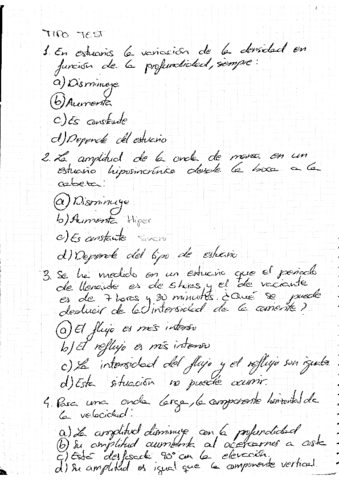 TIPO TEST
1. En estuarios la variación de la densidad en
función de la profundidad, siempre:
a) Disminuye
b) Aumenta
c) Es constante
d) Depende del estuario
2. La amplitud de la onda de marea en un
estuario hiposincrónico desde la boca a la
cabeza:
a) Disminuye
b) Aumenta Hiper
c) Es constante Sincro
d) Depende del tipo de estuario
3. Se ha medido en un estuario que el periodo
de llenante es de 5 horas y el de vaciante
es de 7 horas y 30 minutos. ¿Qué se puede
deducir de la intensidad de la corriente?
a) El flujo es más intenso
b) El reflujo es más intenso
c) La intensidad del flujo y el reflujo son iguales
d) Esta situación no puede ocurrir.
4. Para una onda larga, la componente horizontal de
la velocidad:
a) La amplitud disminuye con la profundidad
b) Su amplitud aumenta al acercarnos a costa
c) Está desfasada 90° con la elevación.
d) Su amplitud es igual que la componente vertical.